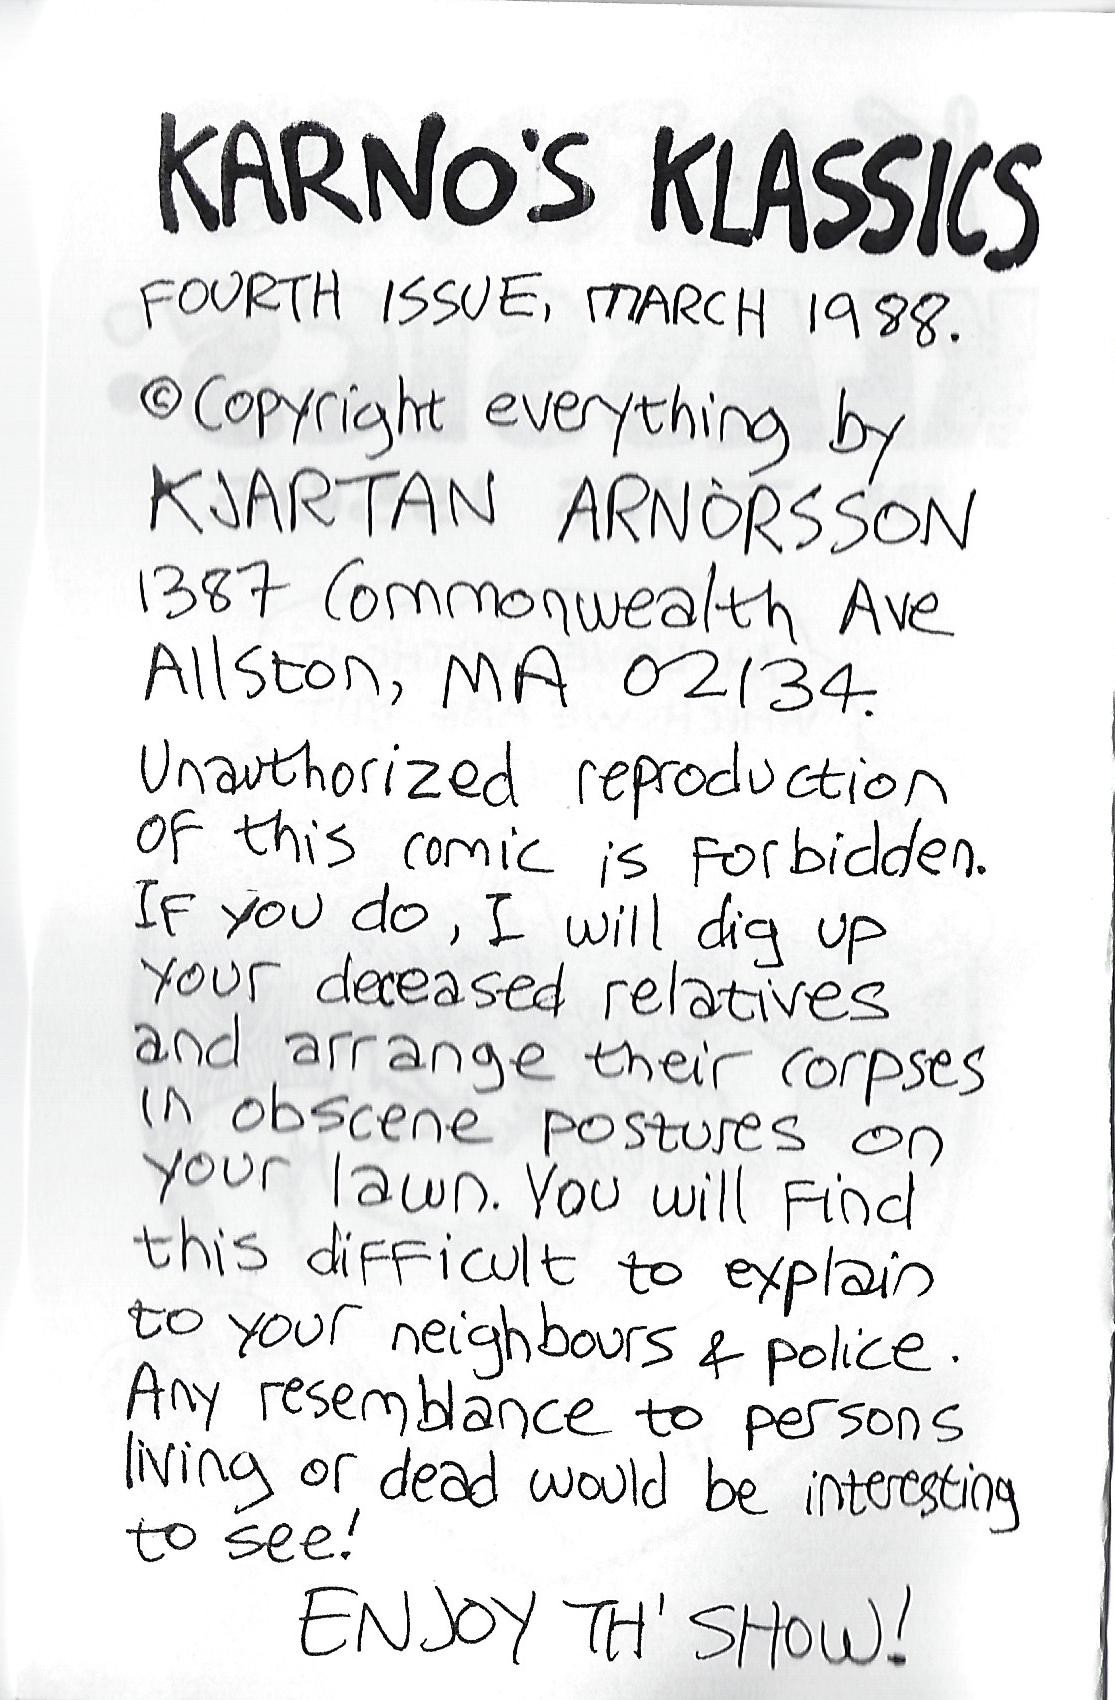 KARNO'S KLASSICS
FOURTH ISSUE, MARCH 1988.
© Copyright everything by
KJARTAN ARNÒRSSON
1387 Commonwealth Ave
Allston, MA 02134.
Unauthorized reproduction
of this comic is forbidden.
If you do, I will dig up
your deceased relatives
and arrange their corpses
in obscene postures on
your lawn. You will find
this difficult to explain
to your neighbours & police.
Any resemblance to persons
living or dead would be interesting
to see!
ENJOY TH' SHOW!